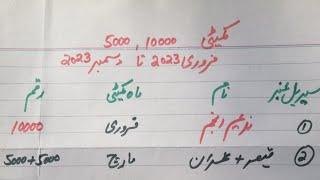 کمیٹی 10000، 5000
فروری 2023 تا دسمبر 2023
سیریل نمبر نام ماہ کمیٹی رقم
① ندیم انجم فروری 10000
② قیصر + عمران مارچ 5000+5000